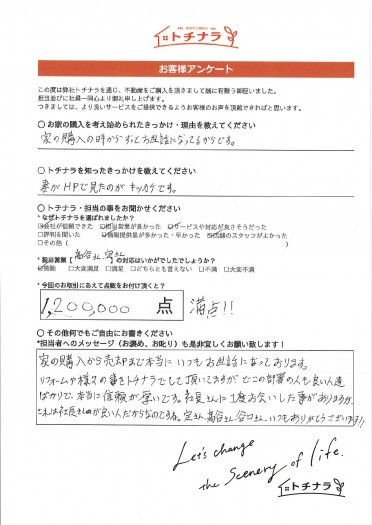 トチナラ
お客様アンケート
この度は弊社トチナラを通じ、不動産をご購入を頂きまして誠に有難う御座いました。
担当並びに社員一同心より御礼申し上げます。
つきましては、より良いサービスをご提供できるようお客様のお声を頂戴できればと思います。
〇 お家の購入を考え始められたきっかけ・理由を教えてください
家の購入の時からずっとお世話になってるからです。
〇 トチナラを知ったきっかけを教えてください
妻がHPで見たのがキッカケです。
〇 トチナラ・担当の事をお聞かせください
*なぜトチナラを選ばれましたか?
会社が信頼できた 担当営業が良かった サービスや対応が良さそうだった
□評判を聞いた 情報提供量が多かった・早かった 店舗のスタッフがよかった
□その他 ( )
*担当営業【高谷さん 定さん】の対応はいかがでしたでしょうか?
感動 □大変満足 □満足 □どちらとも言えない □不満 □大変不満
*今回のお取引にあえて点数をお付け頂くと?
1,200,000 点 満点!!
〇 その他何でもご自由にお書きください
*担当者へのメッセージ(お褒め、お叱り)も是非宜しくお願い致します!
家の購入から売却まで本当にいつもお世話になっております。
リフォームや様々の事をトチナラでして頂いてますがどこの部署の人も良い人達
ばかりで、本当に信頼が厚いです。社長さんに1度お会いした事がありますが、
これは社長さんのが良い人だからなのですね。定さん、高谷さん、谷口さん、いつもありがとうございます!!
Let's change
the scenery of life.
トチナラ